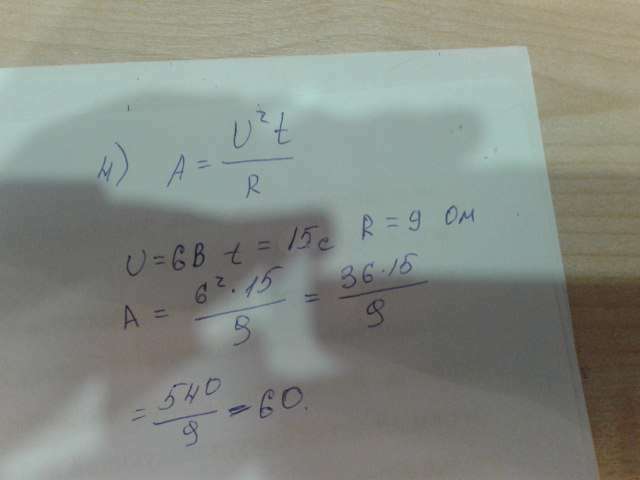 4) A = U²t / R
U = 6В t = 15с R = 9 Ом
A = 6²·15 / 9 = 36·15 / 9
= 540 / 9 = 60.